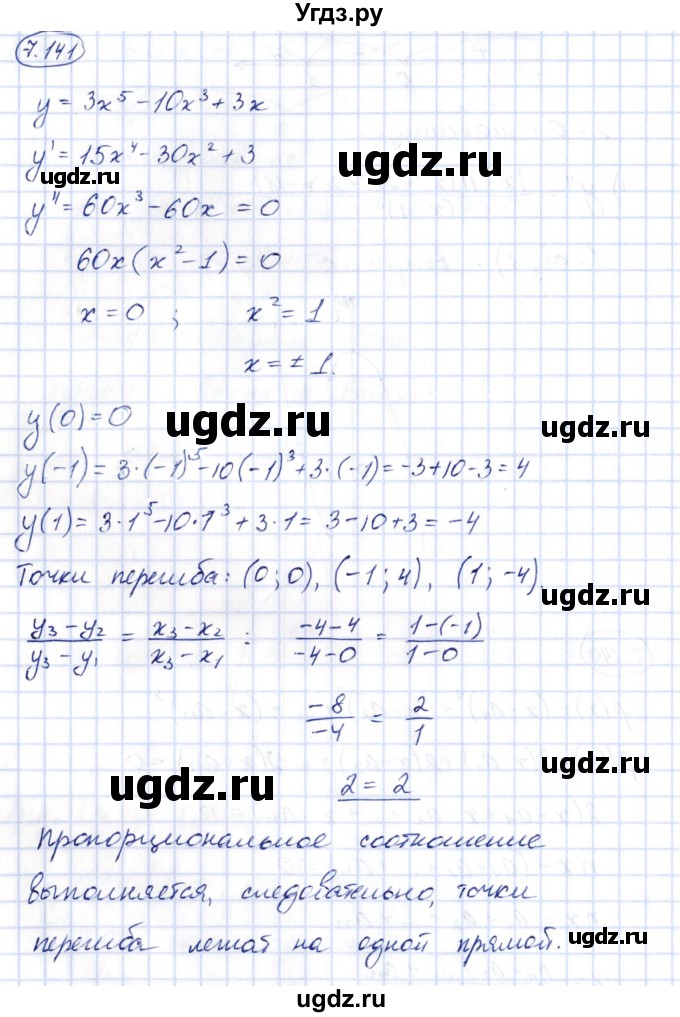 Угдз.ру
7.141
y = 3x⁵ - 10x³ + 3x
y' = 15x⁴ - 30x² + 3
ugdz.ru
ugdz.ru
y'' = 60x³ - 60x = 0
60x(x² - 1) = 0
x = 0 ; x² = 1
x = ± 1.
y(0) = 0
ugdz.ru
ugdz.ru
y(-1) = 3·(-1)⁵ - 10(-1)³ + 3·(-1) = -3 + 10 - 3 = 4
y(1) = 3·1⁵ - 10·1³ + 3·1 = 3 - 10 + 3 = -4
Точки перегиба: (0; 0), (-1; 4), (1; -4)
ugdz.ru
(y₃ - y₂)/(y₃ - y₁) = (x₃ - x₂)/(x₃ - x₁) : (-4-4)/(-4-0) = (1-(-1))/(1-0)
-8/-4 = 2/1
ugdz.ru
ugdz.ru
2 = 2
Пропорциональное соотношение
выполняется, следовательно, точки
перегиба лежат на одной прямой.
ugdz.ru
ugdz.ru